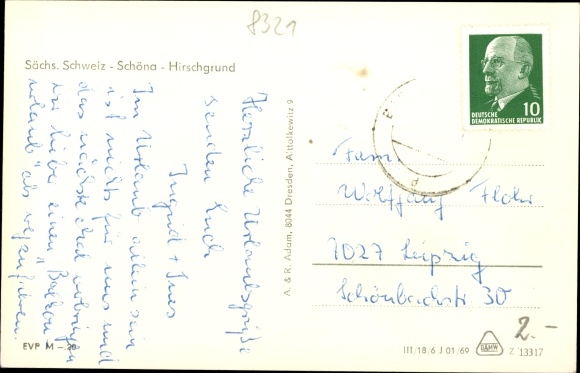 8321
Sächs. Schweiz - Schöna - Hirschgrund
Herzliche Urlaubsgrüße
senden Euch
Ingrid + Ines
Im Urlaub allein sein
ist nichts für uns und
das nächste Mal verbringen
wir lieber einen "Balkon-
urlaub" als wegzufahren.
EVP M -.20
A. & R. Adam, 8044 Dresden, Alttolkewitz 9
DEUTSCHE
DEMOKRATISCHE REPUBLIK
10
Fam.
Wolfgang
7027 Leipzig
Schönbachstr 30
2.-
III/18/6 J 01/69
Z 13317